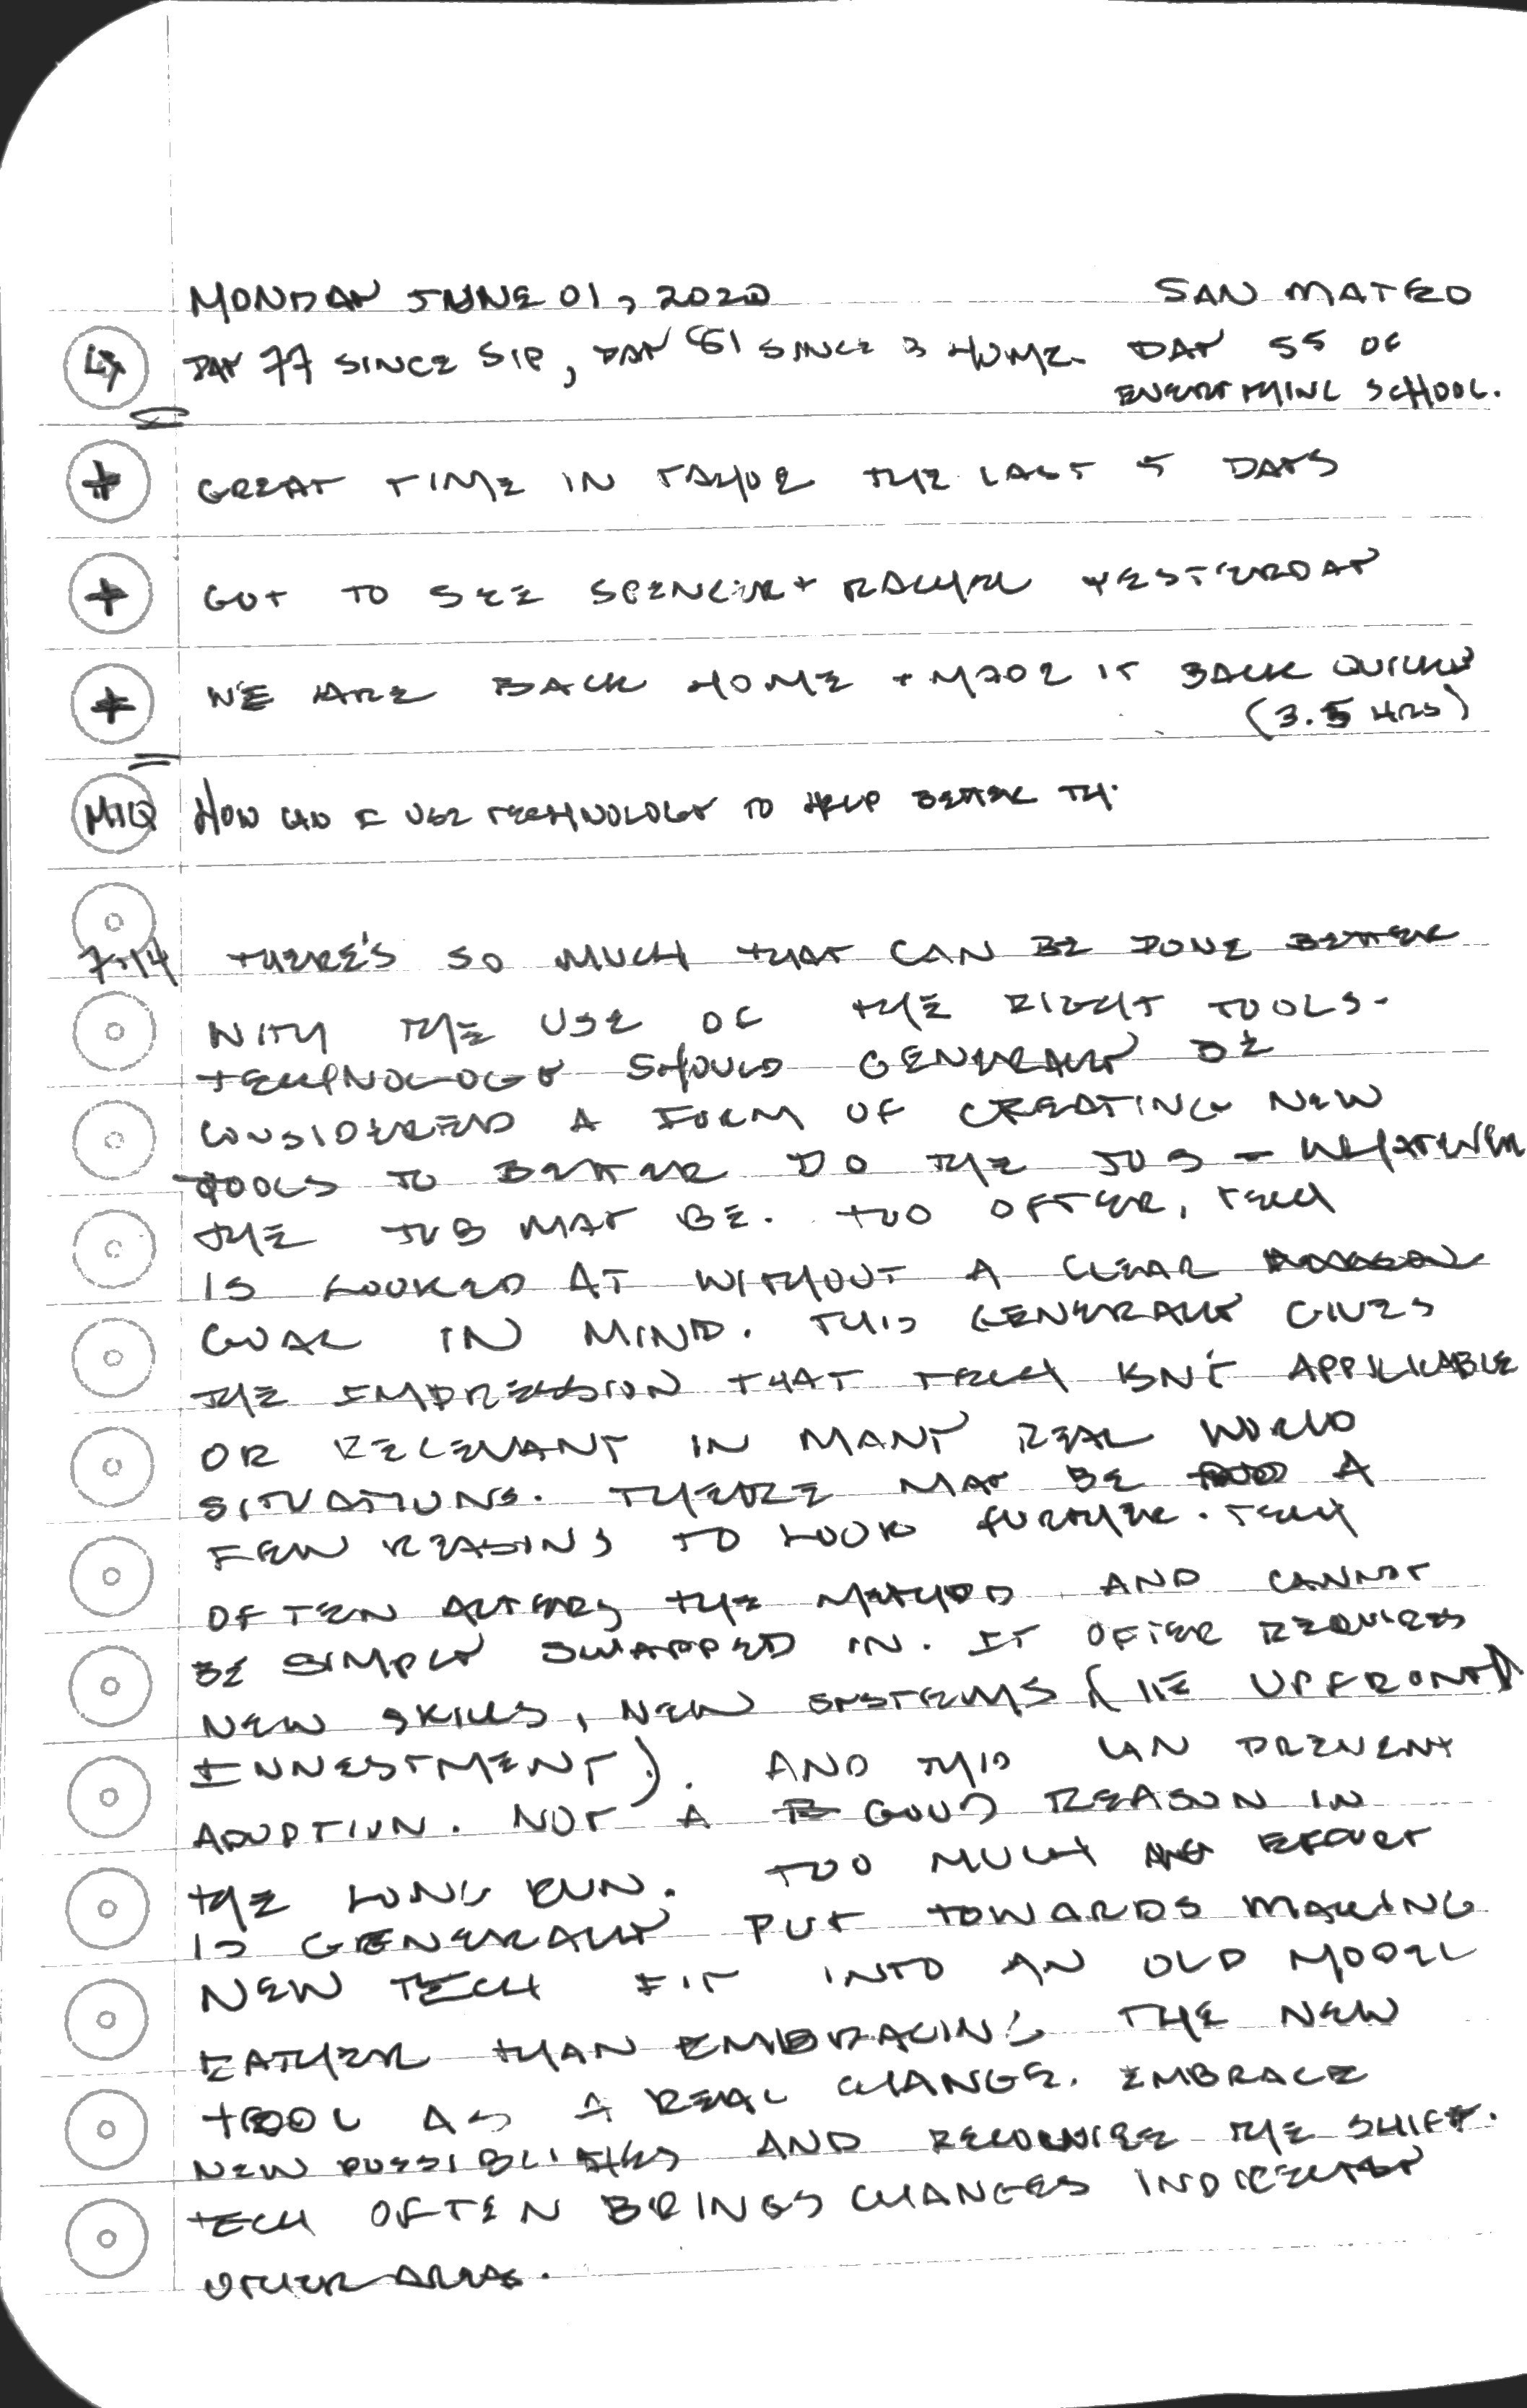 MONDAY JUNE 01, 2020 SAN MATEO
DAY 77 SINCE SIP, DAY 81 SINCE B HOME. DAY 55 OF
EVERYTHING SCHOOL.
+ GREAT TIME IN TAHOE THE LAST 5 DAYS
+ GOT TO SEE SPENCER + RACHEL YESTERDAY
+ WE ARE BACK HOME + MADE IT BACK QUICKLY
(3.5 HRS)
MIQ HOW CAN I USE TECHNOLOGY TO HELP BETTER TH.
7:14 THERE'S SO MUCH THAT CAN BE DONE BETTER
WITH THE USE OF THE RIGHT TOOLS.
TECHNOLOGY SHOULD GENERALLY BE
CONSIDERED A FORM OF CREATING NEW
TOOLS TO BETTER DO THE JOB - WHATEVER
THE JOB MAY BE. TOO OFTEN, TECH
IS LOOKED AT WITHOUT A CLEAR
GOAL IN MIND. THIS GENERALLY GIVES
THE IMPRESSION THAT TECH ISN'T APPLICABLE
OR RELEVANT IN MANY REAL WORLD
SITUATIONS. THERE MAY BE A
FEW REASONS TO LOOK FURTHER. TECH
OFTEN ALTERS THE METHOD AND CANNOT
BE SIMPLY SWAPPED IN. IT OFTEN REQUIRES
NEW SKILLS, NEW SYSTEMS (IE UPFRONT
INVESTMENT). AND THIS CAN PREVENT
ADOPTION. NOT A GOOD REASON IN
THE LONG RUN. TOO MUCH EFFORT
IS GENERALLY PUT TOWARDS MAKING
NEW TECH FIT INTO AN OLD MODEL
RATHER THAN EMBRACING THE NEW
TOOL AS A REAL CHANGE. EMBRACE
NEW POSSIBLITIES AND RECOGNIZE THE SHIFT.
TECH OFTEN BRINGS CHANGES INDIRECTLY
OTHER AREAS.